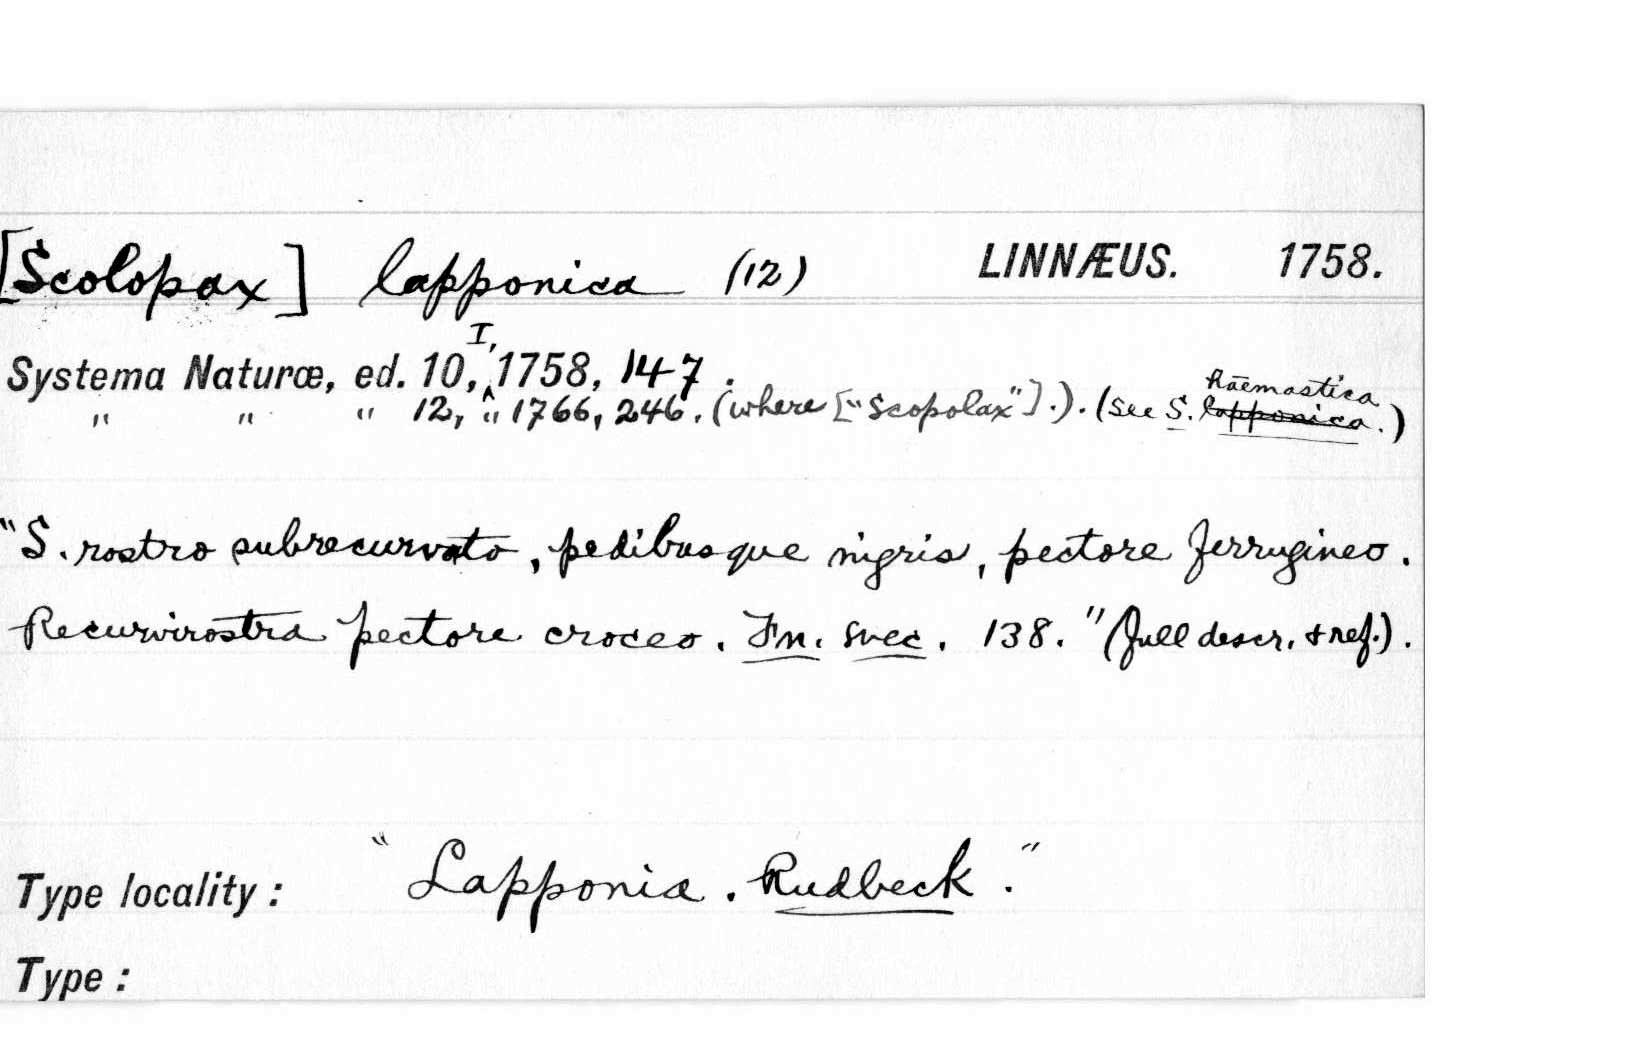 [Scolopax] lapponica (12) LINNÆUS. 1758.
Systema Naturæ, ed. 10, I, 1758, 147.
" " " 12, " 1766, 246. (where ["Scopolax"].). (see S. haemastica lapponica.)
"S. rostro subrecurvato, pedibusque nigris, pectore ferrugineo.
Recurvirostra pectore croceo. Fn. svec. 138." (full descr. & ref.).
Type locality: "Lapponia. Rudbeck."
Type: